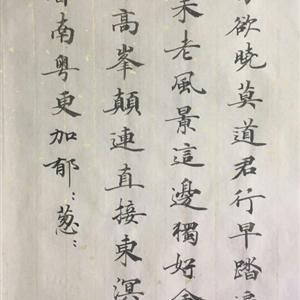 欲曉莫道君行早踏
未老風景這邊獨好會
高峯顛連直接東溟
南粵更加郁:葱: